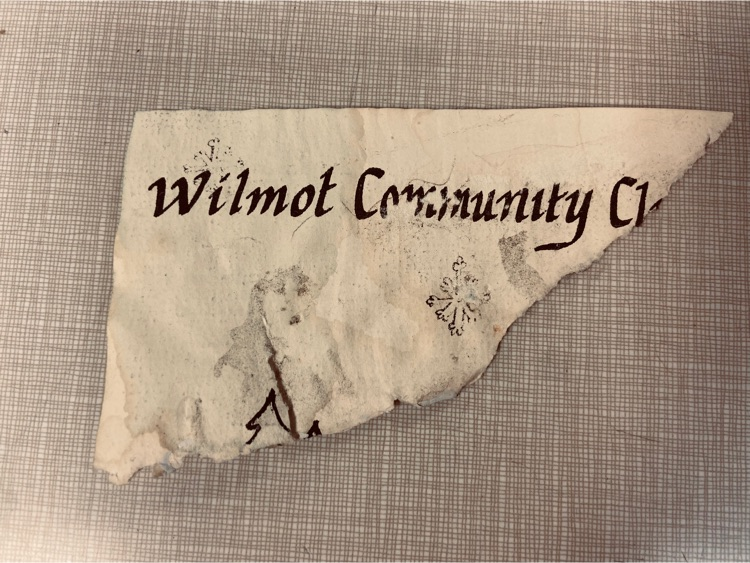 Wilmot Community